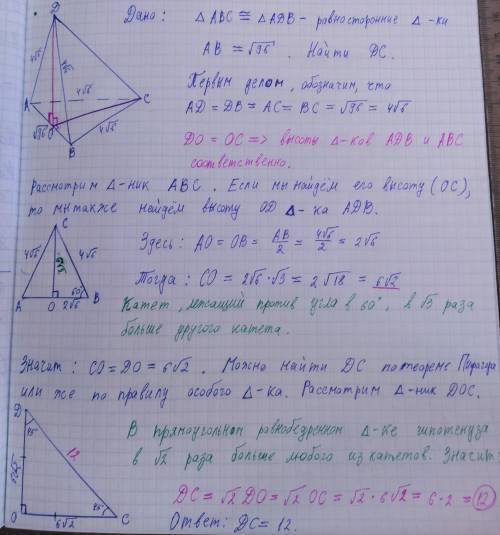 Дано: △ABC ≅ △ADB - равносторонние △-ки
AB = √96. Найти DC.
Первым делом, обозначим, что
AD = DB = AC = BC = √96 = 4√6
DO = OC => высоты △-ков ADB и ABC
соответственно.
D
4√6
4√6
4√6
A
C
√96
O
4√6
B
Рассмотрим △-ник ABC. Если мы найдём его высоту (OC),
то мы также найдём высоту OD △-ка ADB.
C
4√6
4√6
60°
A
O
2√6
B
Здесь: AO = OB = AB/2 = 4√6/2 = 2√6
Тогда: CO = 2√6 · √3 = 2√18 = 6√2
Катет, лежащий против угла в 60°, в √3 раза
больше другого катета.
Значит: CO = DO = 6√2. Можно найти DC по теореме Пифагора
или же по правилу особого △-ка. Рассмотрим △-ник DOC.
D
45°
12
6√2
45°
O
6√2
C
В прямоугольном равнобедренном △-ке гипотенуза
в √2 раза больше любого из катетов. Значит:
DC = √2 DO = √2 OC = √2 · 6√2 = 6·2 = 12
Ответ: DC = 12.